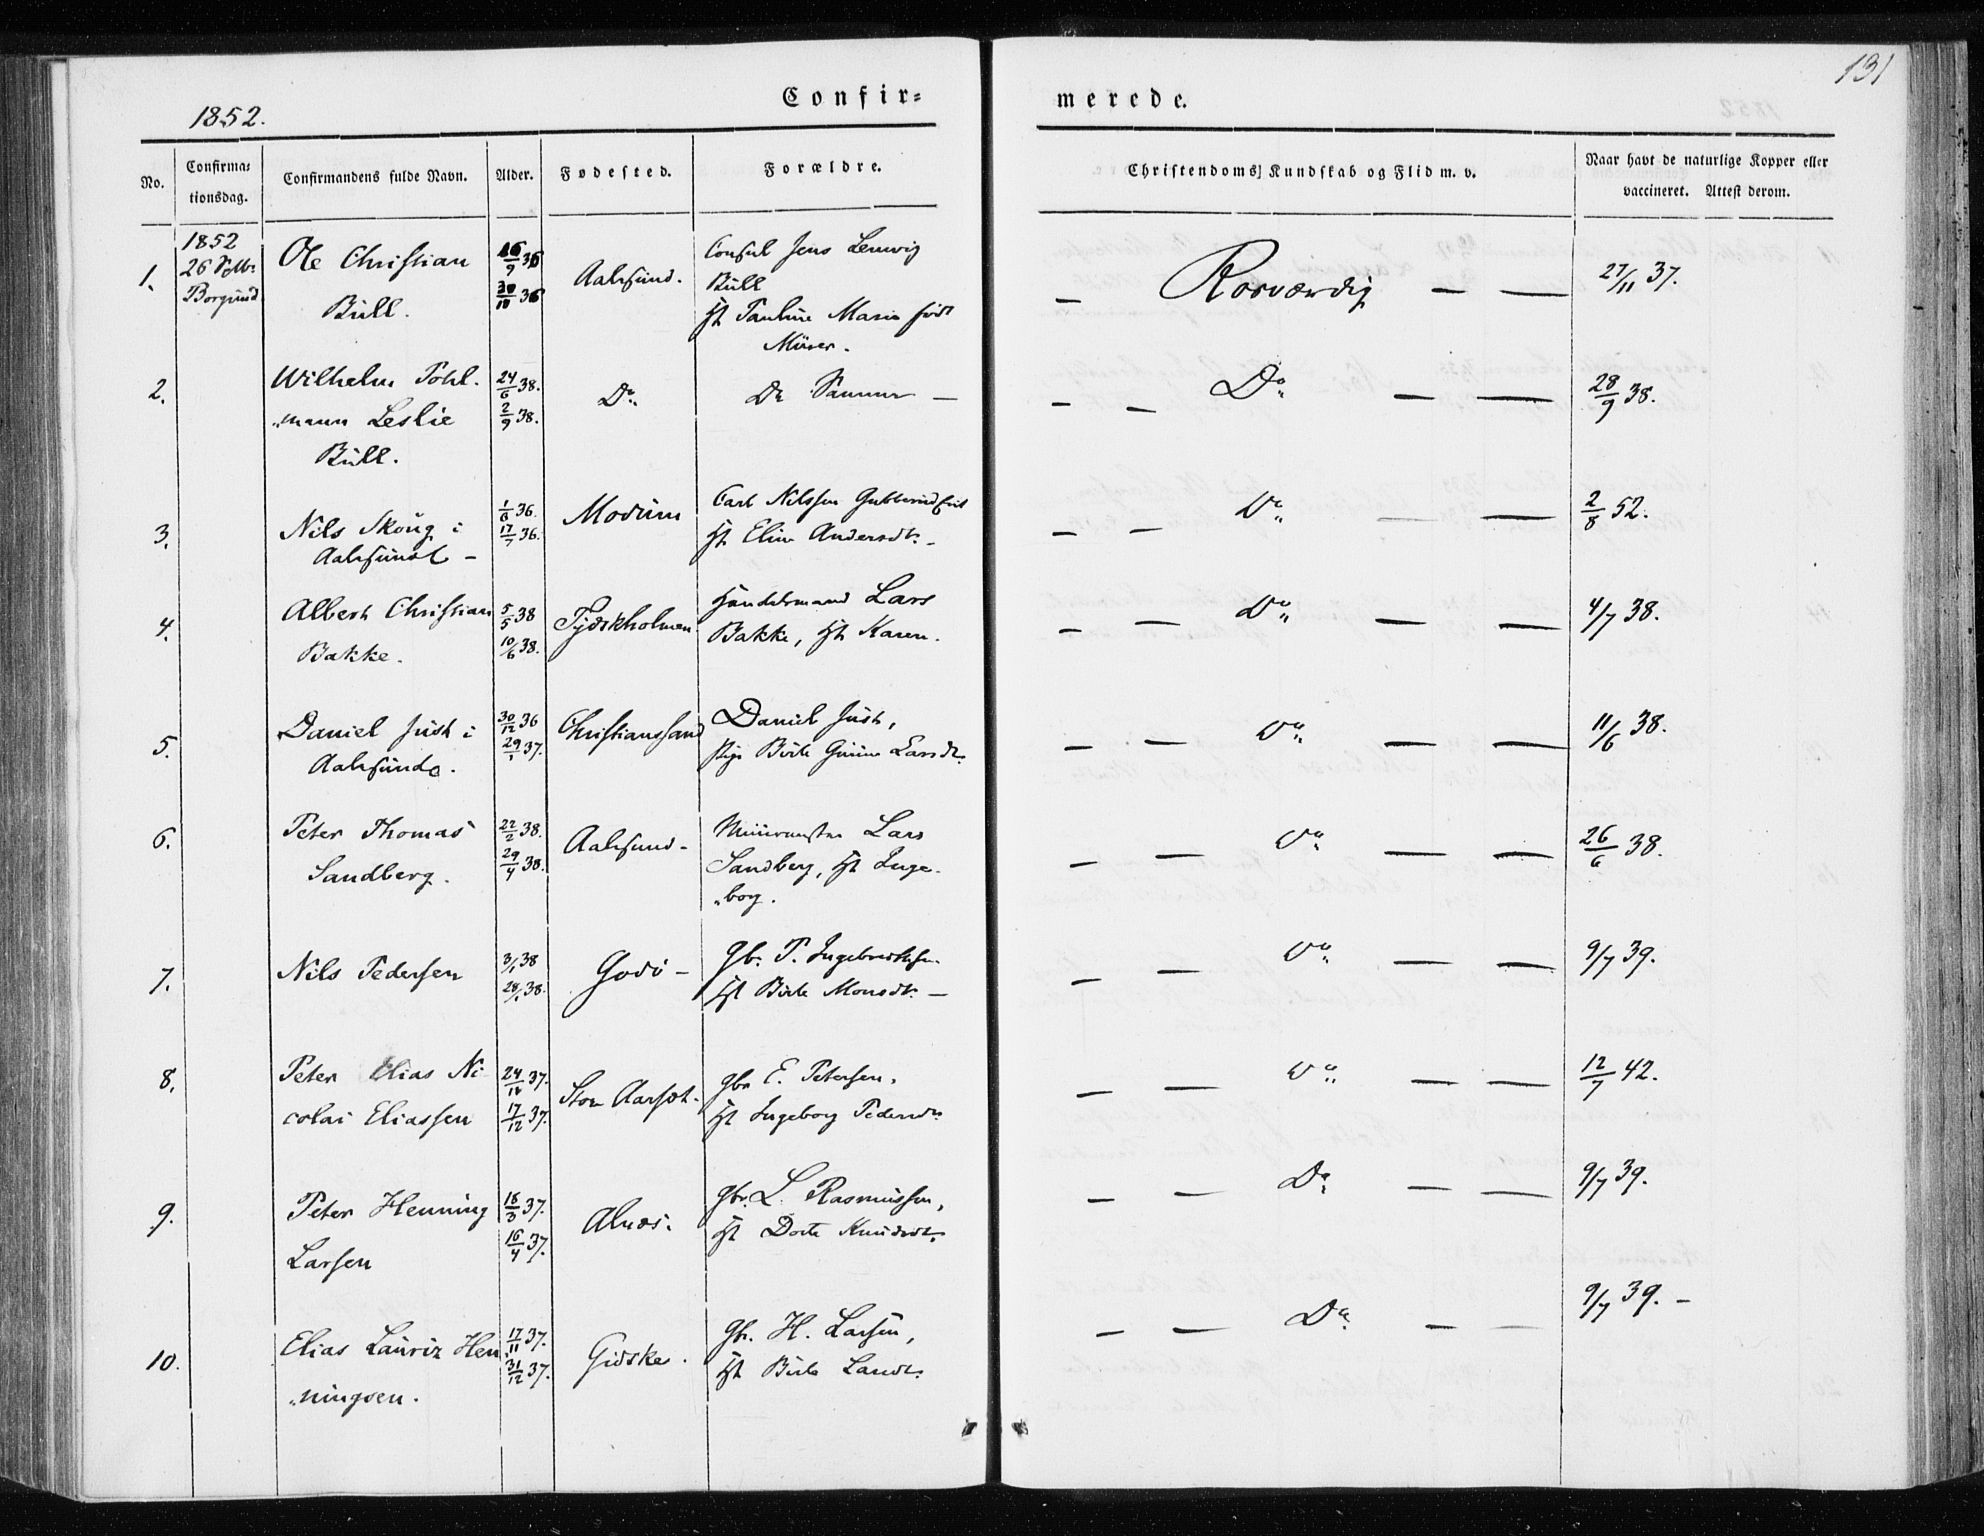 131
1852.
Confir=
merede.
No.
Confirma=
tionsdag.
Confirmandens fulde Navn.
Alder.
Fødested.
Forældre.
Christendoms Kundskab og Flid m. v.
Naar havt de naturlige Kopper eller
vaccineret. Attest derom.
1852
26 Septbr
Borgund
1.
Ole Christian
Büll.
16/9 36
30/10 36
Aalesund.
Consul Jens Lemvig
Büll
Hst Pauline Marie født
Müser.
— Roosværdig — —
27/11 37.
2.
Wilhelm Pohl-
„mann Leslie
Büll.
24/6 38.
2/9 38.
Do.
De Samme —
— — Do — —
28/9 38.
3.
Nils Skoug i
Aalesund –
1/6 36.
17/7 36.
Modum
Carl Nilssen
Hst Eline Andersdtr. –
— — Do — —
2/8 52.
4.
Albert Christian
Bakke.
5/5 38
10/6 38.
Tydskholmen
Handelsmand Lars
Bakke, Hst Karen.
— — Do — —
4/7 38.
5.
Daniel Just i
Aalesund.
30/12 36
29/1 37.
Christianssand
Daniel Just,
Pige Birte Larsdtr.
— — Do — —
11/6 38.
6.
Peter Thomas
Sandberg.
22/2 38.
29/4 38.
Aalesund –
Muurmester Lars
Sandberg, Hst Inge-
„borg.
— — Do — —
26/6 38.
7.
Nils Pedersen
3/1 38
28/1 38.
Godø –
Gbr. P. Ingebrigtsen
Hst Birte Monsdtr. –
— — Do — —
9/7 39.
8.
Peter Elias Ni-
colai Eliassen
24/11 37.
17/12 37.
Store Aarset.
gbr E. Petersen,
Hst Ingeborg Pedersdtr
— — Do — —
12/7 42.
9.
Peter Henning
Larsen
18/3 37.
16/4 37.
Alnæs.
gbr. L. Rasmussen,
Hst Dorte Knudsdtr.
— — Do — —
9/7 39.
10.
Elias Lauriz Hen
„ningsen.
17/11 37.
31/12 37.
Gidske.
Gbr. H. Larsen,
Hst Birte Larsdtr.
— — Do — —
9/7 39. –